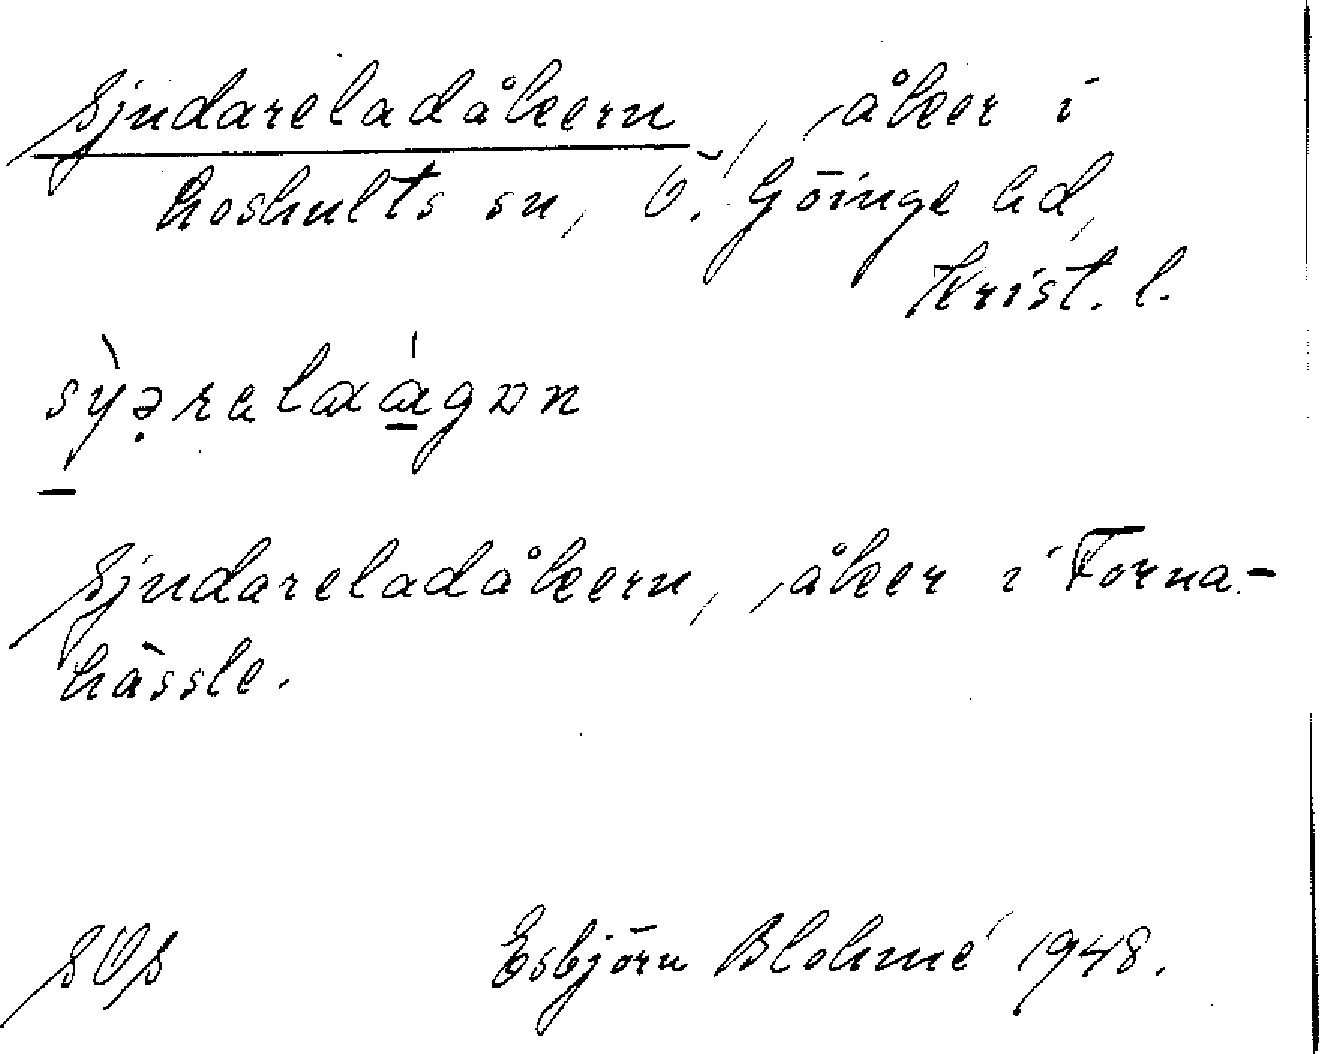 Sjudareladåkern, åker i
Loshults sn, Ö. Göinge hd,
Krist. l.
sỳəralaágɒn
Sjudareladåkern, åker i Forna-
hässle.
SOS Esbjörn Blohmé 1948.